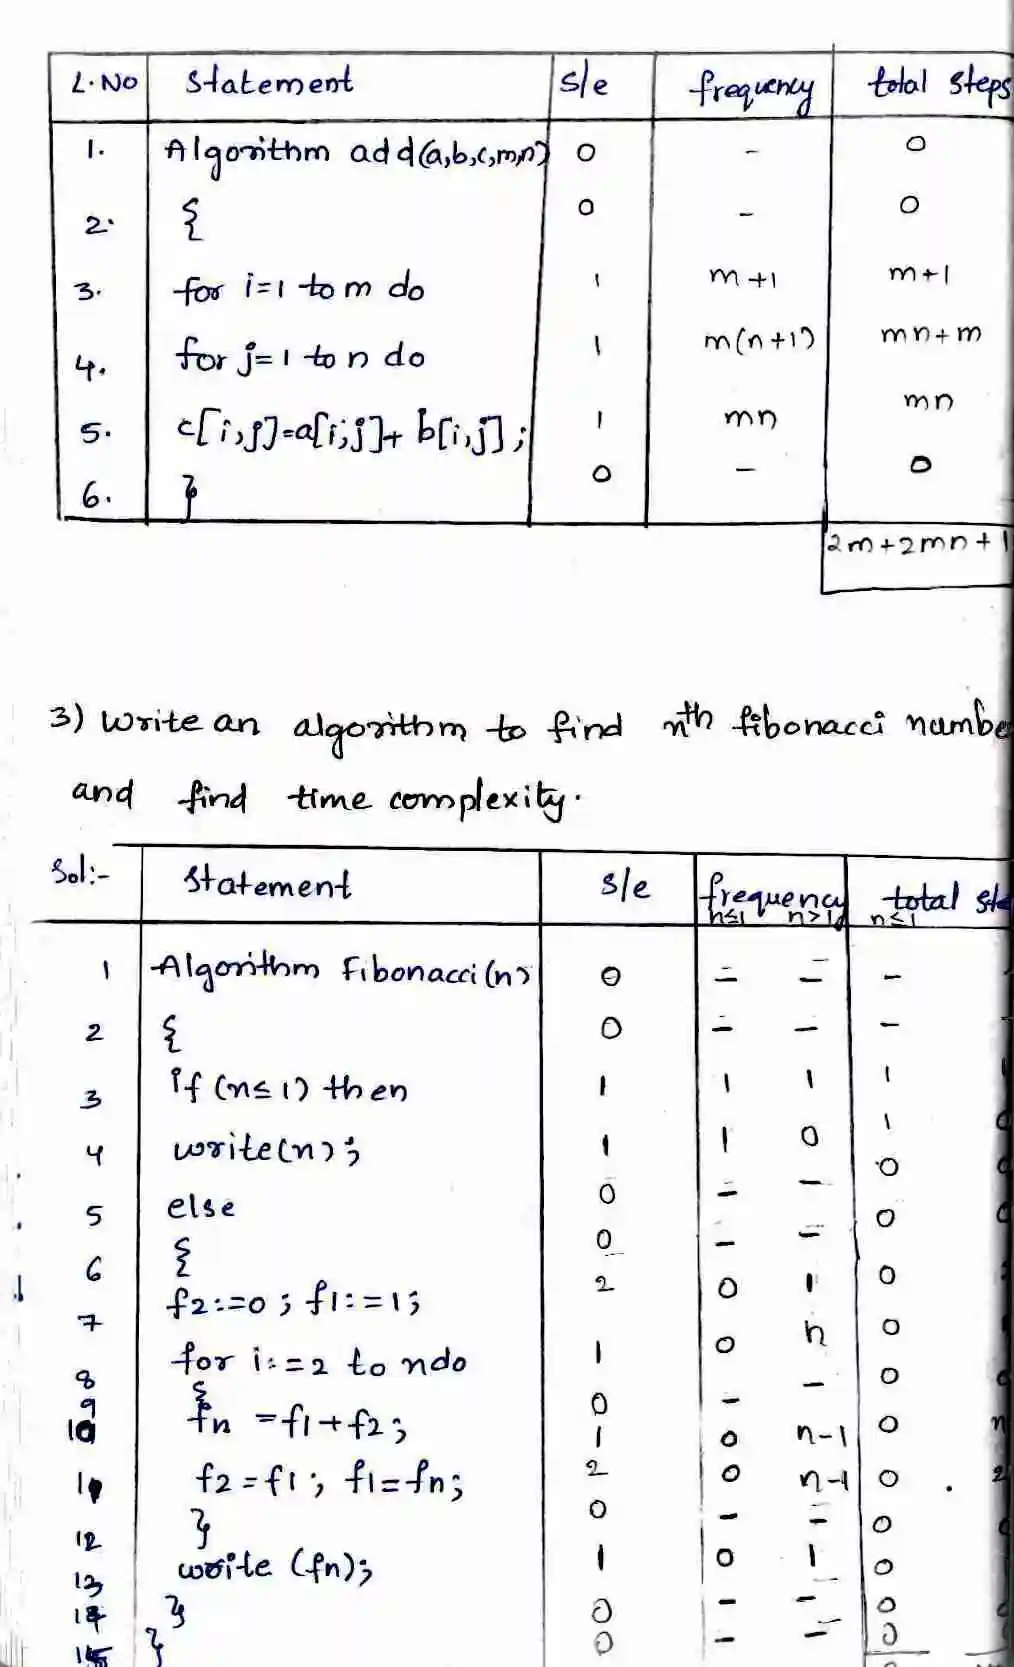 L.No Statement s/e frequency total steps
1. Algorithm add(a,b,c,m,n) 0 - 0
2. { 0 - 0
3. for i=1 to m do 1 m+1 m+1
4. for j=1 to n do 1 m(n+1) mn+m
5. c[i,j]=a[i,j]+ b[i,j]; 1 mn mn
6. } 0 - 0
2m+2mn+1
3) Write an algorithm to find nth fibonacci numbe
and find time complexity.
Sol:- Statement s/e frequency total ste
n≤1 n>1 n≤1
1 Algorithm Fibonacci(n) 0 - - -
2 { 0 - - -
3 if (n≤1) then 1 1 1 1
4 write(n); 1 1 0 1
5 else 0 - - 0
6 { 0 - - 0
7 f2:=0; f1:=1; 2 0 1 0
8 for i:=2 to n do 1 0 n 0
9 { 0 - - 0
10 fn =f1+f2; 1 0 n-1 0 n
11 f2=f1; f1=fn; 2 0 n-1 0 2
12 } 0 - - 0
13 write (fn); 1 0 1 0
14 } 0 - - 0
15 } 0 - - 0